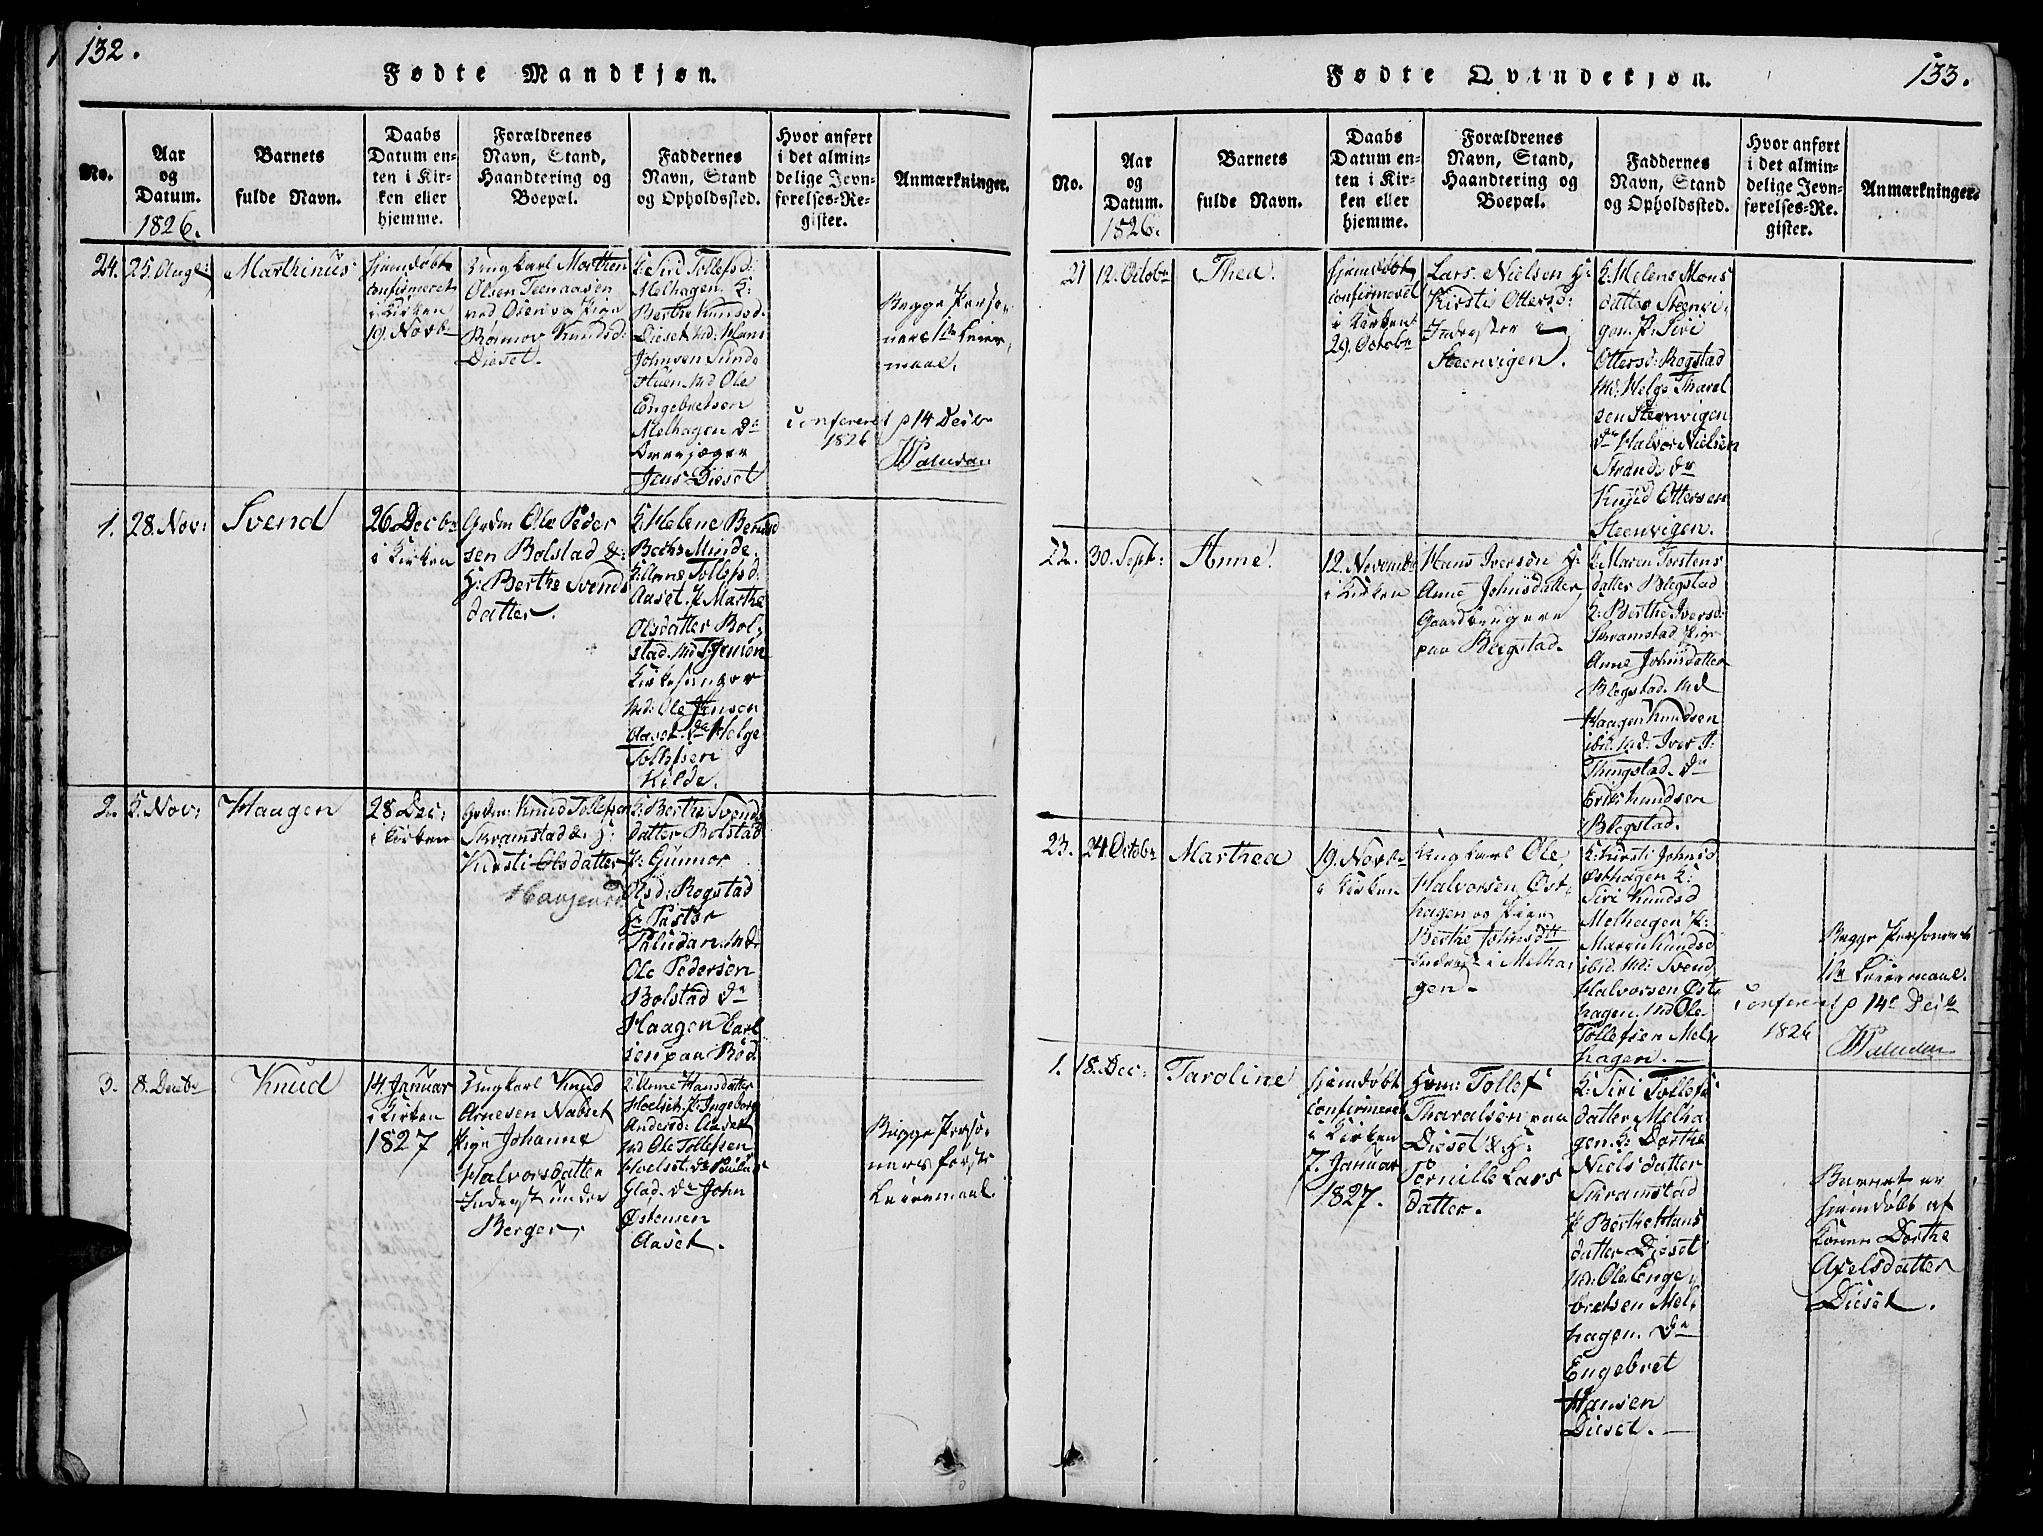 132.
Fødte Mandkjøn.
No.
Aar
og
Datum.
1826.
Barnets
fulde Navn.
Daabs
Datum en-
ten i Kir-
ken eller
hjemme.
Forældrenes
Navn, Stand,
Haandtering og
Boepæl.
Faddernes
Navn, Stand
og Opholdssted.
Hvor anført
i det almin-
delige Jevn-
førelses-Re-
gister.
Anmærkninger.
24.
25. Aug:
Marthinus
hjemdøbt
confirmeret
i Kirken
19. Novb
Ungkarl Morthen
Olsen Teenaasen
ved Osen og Pige
Rønnov Knudsd:
Dieset.
K: Siri Tollefsd:
Melhagen K:
Berthe Knudsd.
Dieset Md: Hans
Johnsen Sunde
Huen. Md Ole
Engebretsen
Melhagen
Jens Dieset
conferert
1826
Begge Perso-
ners 1te Leier-
maal.
p 14 Decbr
Paludan
1.
28. Nov:
Svend
26 Decbr
i Kirken
Grdm Ole Peder
sen Bolstad &
H: Berthe Svends
datter.
K: Helene Bernd
Minde.
K: Anne Tollefsd:
Aaset. P: Marthe
Olsdatter Bol-
stad. Md: Jenson
Kirkesanger
Md: Ole Jensen
Aaset. Do Helge
Tollefsen
Kilde.
2.
5. Nov:
Haagen
28 Dec:
i Kirken
Grdm: Knud Tollefsen
Skramstad & H:
Kirsti Olsdatter
Haagensd
K: Berthe Svends
datter Bolstad
P: Gunnor
Olsd: Rogstad
Hr Pastor
Paludan. Md:
Ole Pedersen
Bolstad Do
Haagen Carl
sen paa Rød.
3.
8. Decbr
Knud
14 Januar
i Kirken
1827
Ungkarl Knud
Arnesen Nabset
Pige Johanne
Halvorsdatter
Inderst under
Berger.
K: Anne Hansdatter
Hoelset. P: Ingeborg
Andersd: Aaset
Md Ole Tollefsen
Hoelset. Do Paulus
Glad. Do John
Østensen
Aaset.
Begge Perso-
ners første
Leiermaal.
133.
Fødte Qvindekjøn.
No.
Aar
og
Datum.
1826.
Barnets
fulde Navn.
Daabs
Datum en-
ten i Kir-
ken eller
hjemme.
Forældrenes
Navn, Stand,
Haandtering og
Boepæl.
Faddernes
Navn, Stand
og Opholdssted.
Hvor anført
i det almin-
delige Jevn-
førelses-Re-
gister.
Anmærkninger.
21
12. Octobr
Thea.
hjemdøbt
confirmeret
i Kirken
29. Octobr
Lars Nielsen H:
Kirsti Ottersd:
Inderster i
Steenvigen.
K: Helene Mons
datter Steenvi-
gen. P: Siri
Ottersd: Rogstad
Md: Helge Tharal
sen Steenvigen
Do Halvor Nielsen
Strand. Do
Knud Ottersen
Steenvigen.
22.
30. Sept:
Anne
12. Novembr
i Kirken
Hans Iversen H:
Anne Johnsdatter
Gaardbrugere
paa Blegstad.
K: Maren Torstens
datter Blegstad
K: Berthe Iversd:
Skramstad Pige
Anne Johnsdatter
Blegstad. Md
Haagen Knudsen
ibid. Md: Iver P:
Thingstad. Do
Erik Knudsen
Blegstad.
23.
24. Octobr
Marthea
19. Novbr
i Kirken
Ungkarl Ole
Halvorsen Øst-
hagen og Pige
Berthe Johnsdtt
Inderst i Melha-
gen.
K: Kirsti Johnsd
Østhagen K:
Siri Knudsd
Melhagen P:
Margit Knudsd
ibid. Md: Svend
Halvorsen Øst-
hagen. Md Ole
Tollefsen Mel-
hagen.
conferert
1826
Begge Personers
1te Leiermaal.
p 14de Decbr
Paludan
1.
18. Dec:
Taroline
hjemdøbt
confirmeret
i Kirken
7. Januar
1827.
Hsm: Tollef
Tharalsen paa
Dieset & H:
Pernille Lars
datter.
K: Siri Tollefs
datter Melha-
gen. K: Dorthe
Nielsdatter
Skramstad
P Berthe Hans
datter Dieset
Md: Ole Enge-
bretsen Mel-
hagen. Do
Engebret
Hansen
Dieset.
Barnet er
hjemdøbt af
Konen Dorthe
Axelsdatter
Dieset.